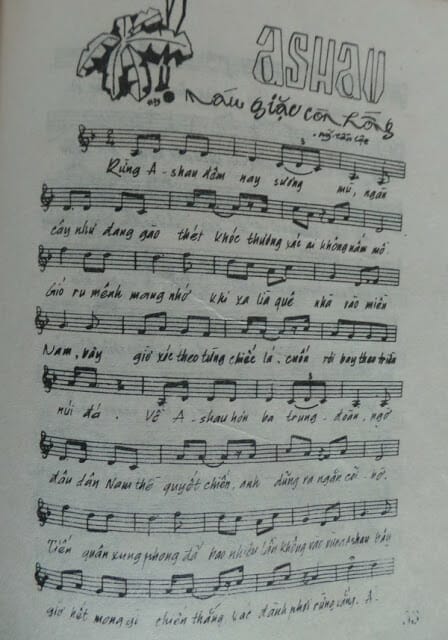 ASHAU
máu giặc còn hồng
Rừng A-shau đêm nay sương mù, ngàn
cây như đang gào thét khóc thương xác ai không nấm mồ
Gió ru mênh mang nhớ khi xa lìa quê nhà vào miền
Nam, bây giờ xác theo từng chiếc lá, cuốn rơi bay theo triền
núi đá. Về A-shau hơn ba trung-đoàn, ngờ
đâu dân Nam thề quyết chiến, anh dũng ra ngăn cõi bờ.
Tiến quân xung phong đã bao nhiêu lần không vào được A shau bây
giờ hết mong gì chiến thắng, xác đành phơi rừng vắng. A-